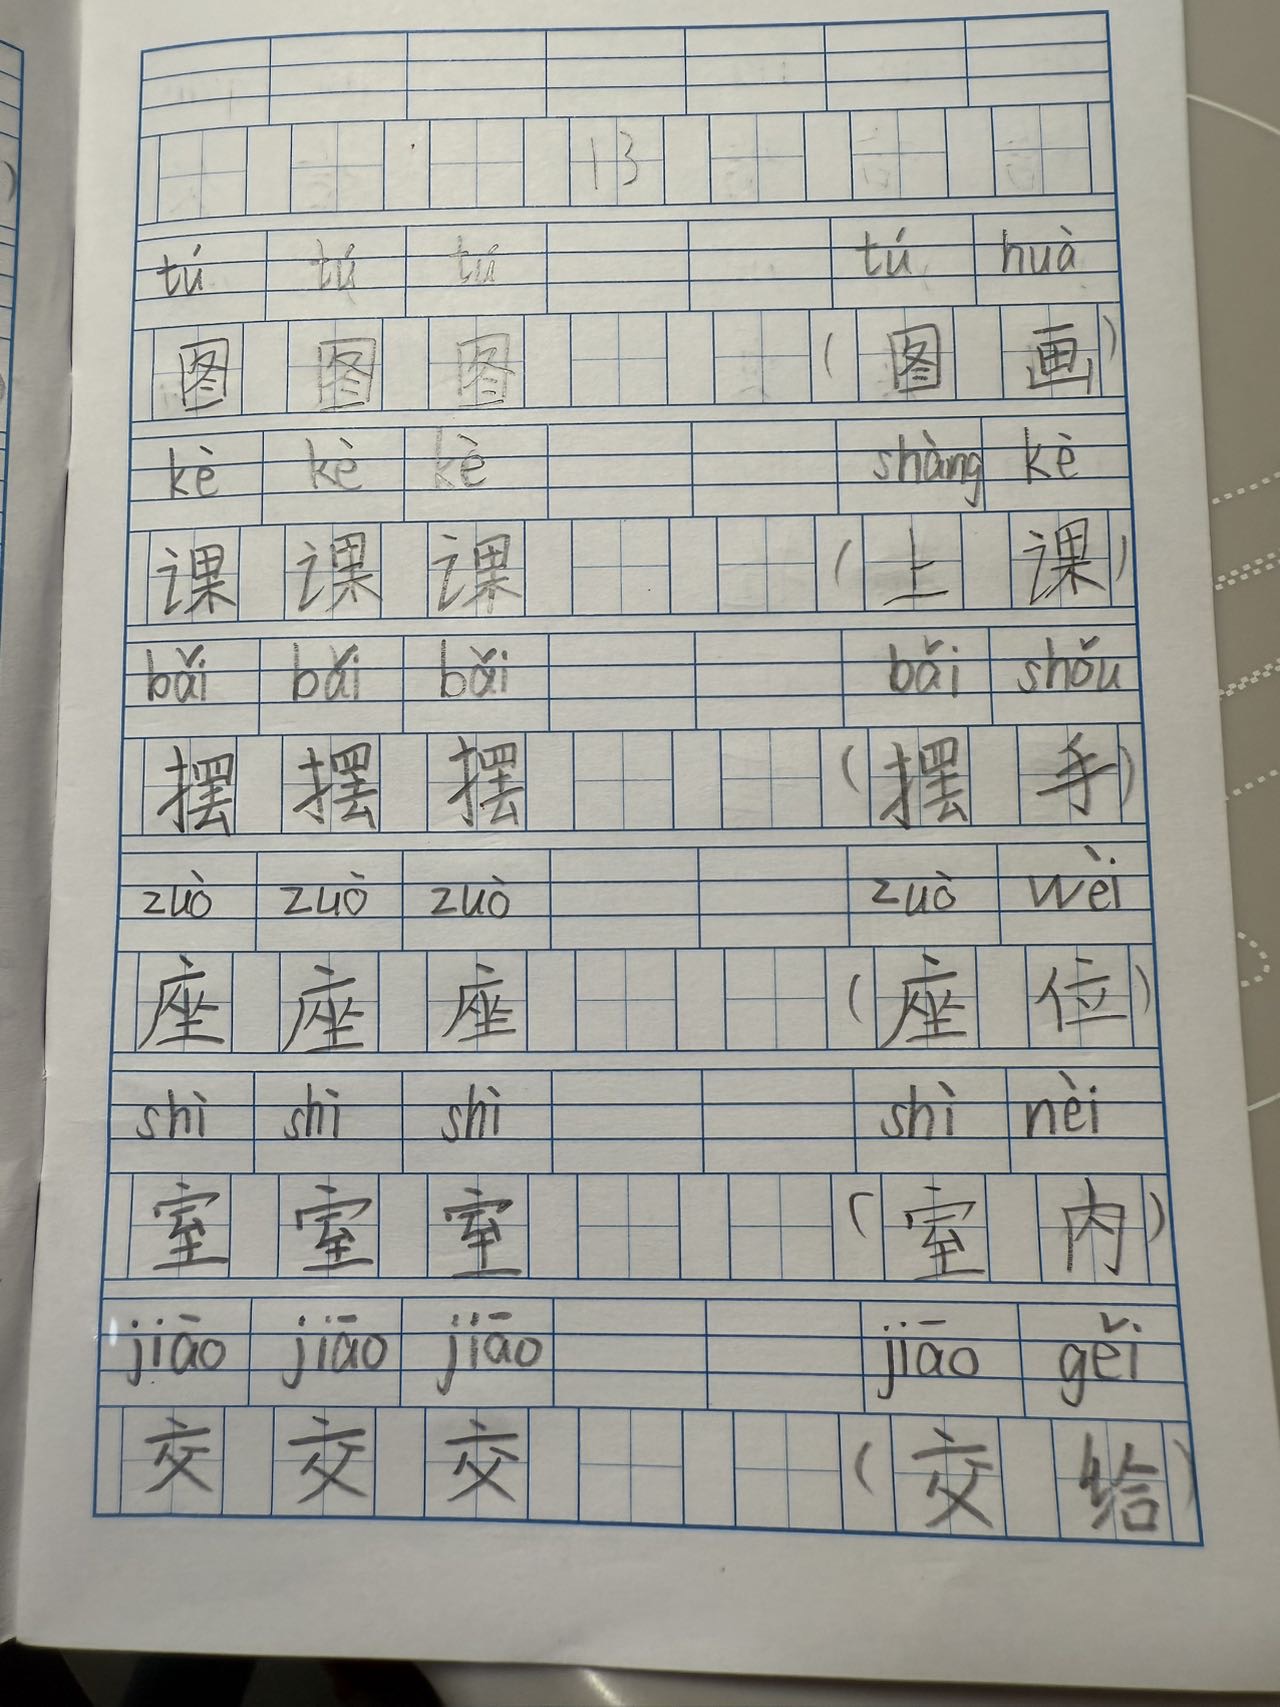 13
tú tú tú tú huà
图 图 图 （图 画）
kè kè kè shàng kè
课 课 课 （上 课）
bǎi bǎi bǎi bǎi shǒu
摆 摆 摆 （摆 手）
zuò zuò zuò zuò wèi
座 座 座 （座 位）
shì shì shì shì nèi
室 室 室 （室 内）
jiāo jiāo jiāo jiāo gěi
交 交 交 （交 给）